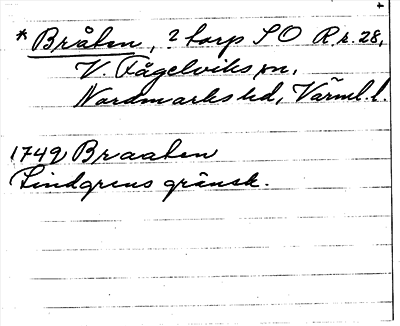 * Bråten, ? torp SO R.r. 28,
V. Fågelviks sn,
Nordmarks hd, Värml. l.
1749 Braaten
Lindgrens gränsk.